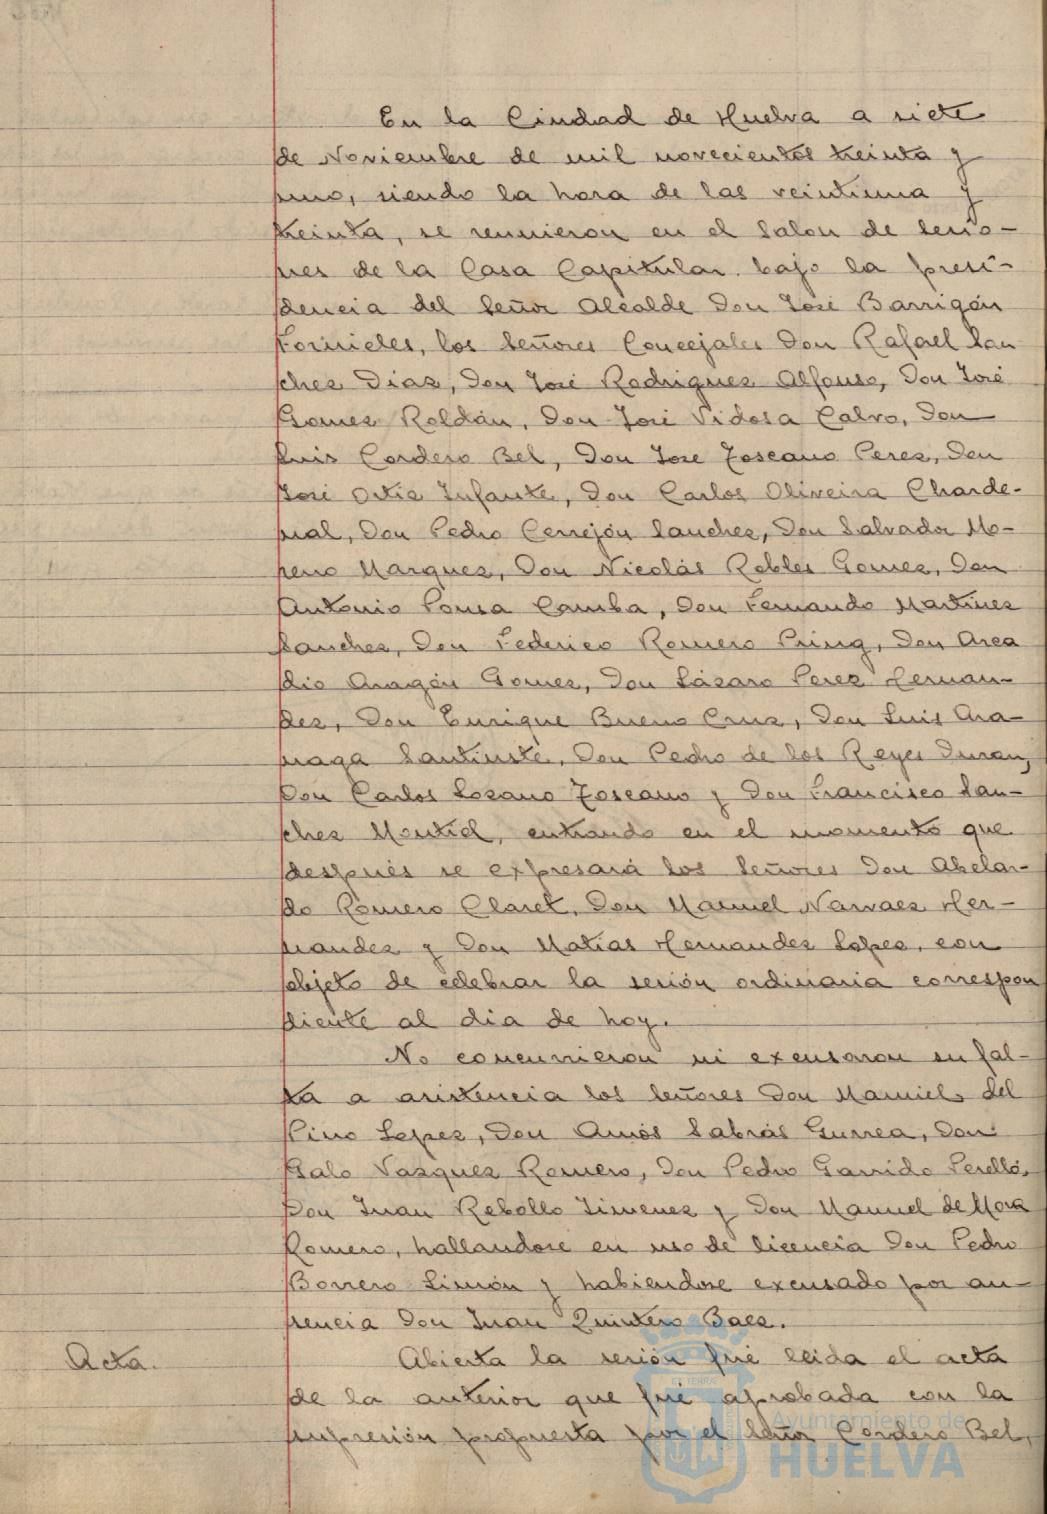 En la Ciudad de Huelva a siete
de Noviembre de mil novecientos treinta y
uno, siendo la hora de las veintiuna y
treinta, se reunieron en el Salon de Sesio-
nes de la Casa Capitular bajo la presi-
dencia del Señor Alcalde Don José Barrigón
Fornieles, los Señores Concejales Don Rafael San
chez Diaz, Don José Rodriguez Alfonso, Don José
Gomez Roldán, Don José Vidosa Calvo, Don
Luis Cordero Bel, Don Jose Toscano Perez, Don
José Ortiz Infante, Don Carlos Oliveira Charde-
nal, Don Pedro Cerrejón Sanchez, Don Salvador Mo-
reno Marquez, Don Nicolás Robles Gomez, Don
Antonio Pousa Camba, Don Fernando Martinez
Sanchez, Don Federico Romero Pring, Don Arca
dio Aragón Gomez, Don Lázaro Perez Hernan-
dez, Don Enrique Bueno Cruz, Don Luis Ara-
naga Santiusté, Don Pedro de los Reyes Duran,
Don Carlos Lozano Toscano y Don Francisco San-
chez Montiel, entrando en el momento que
después se expresará los Señores Don Abelar-
do Romero Claret, Don Manuel Narvaez Her-
nandez y Don Matías Hernandez Lopez, con
objeto de celebrar la sesión ordinaria correspon
diente al dia de hoy.
No concurrieron ni excusaron su fal-
ta a asistencia los Señores Don Manuel del
Pino Lopez, Don Amós Sabrás Gurrea, Don
Galo Vazquez Romero, Don Pedro Garrido Perelló,
Don Juan Rebollo Jimenez y Don Manuel de Mora
Romero, hallandose en uso de licencia Don Pedro
Borrero Limón y habiendose excusado por au-
sencia Don Juan Quintero Baez.
Acta.
Abierta la sesión fué leida el acta
de la anterior que fué aprobada con la
supresión propuesta por el Señor Cordero Bel,
Ayuntamiento de
HUELVA